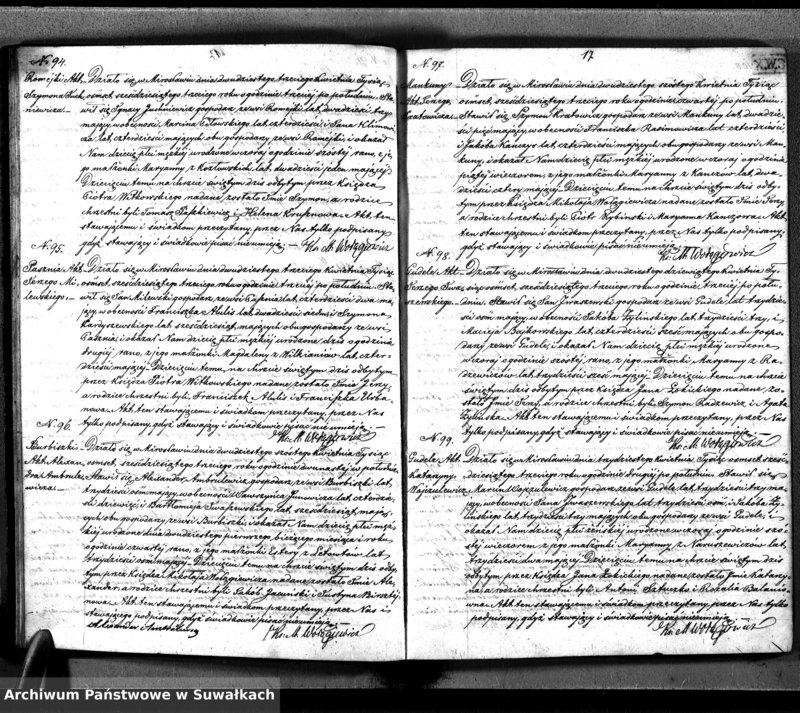 No 94.
Romejki Akt
Szymona Juch
niewicza
Działo się w Mirosławiu dnia dwudziestego trzeciego Kwietnia Tysiąc
ośmset sześćdziesiątego trzeciego roku o godzinie trzeciej po południu. Sta
wił się Ignacy Juchniewicz gospodarz ze wsi Romejki, lat dwadzieścia
mający w obecności Marcina lat czterdzieści i Jana
lat czterdzieści mających obu gospodarzy ze wsi Romejki i okazał
Nam dziecię płci męzkiej urodzone wczoraj o godzinie szóstej rano, z je
go małżonki Maryanny z Kozłowskich lat dwadzieścia jeden mającej
Dziecięciu temu na chrzcie świętym dziś odbytym przez Księdza
Piotra Witkowskiego nadane zostało Imie Szymon, a rodzice
chrzestni byli Tomasz i Helena Akt ten
stawającemu i świadkom przeczytany, przez Nas tylko podpisany
gdyż stawający i świadkowie pisać nieumieją
Ks. M. Wołągiewicz
No 95.
Jerzego Mi
lewskiego
Działo się w Mirosławiu dnia dwudziestego trzeciego Kwietnia Tysiąc
ośmset sześćdziesiątego trzeciego roku o godzinie trzeciej po południu. Sta
wił się Jan Milewski gospodarz ze wsi lat czterdzieści dwa ma
jący w obecności Franciszka lat dwadzieścia siedm i Szymona
lat sześćdziesiąt mających obu gospodarzy ze wsi
i okazał Nam dziecię płci męzkiej urodzone dziś o godzinie
drugiej rano, z jego małżonki Magdaleny z lat czter
dzieści mającej. Dziecięciu temu na chrzcie świętym dziś odbytym
przez Księdza Piotra Witkowskiego nadane zostało Imie Jerzy,
a rodzice chrzestni byli Franciszek i Franciszka Urba
nowa. Akt ten stawającemu i świadkom przeczytany, przez Nas
tylko podpisany, gdyż stawający i świadkowie pisać nieumieją
Ks. M. Wołągiewicz
No 96.
Burbiszki
Akt Aleksan
dra Ambrule
wicza
Działo się w Mirosławiu dnia dwudziestego szóstego Kwietnia Tysiąc
ośmset sześćdziesiątego trzeciego roku o godzinie dwunastej w południe
Stawił się Aleksander Ambrulewicz gospodarz ze wsi Burbiszki lat
trzydzieści ośm mający w obecności lat czterdzie
ści dziewięć i Bartłomieja lat sześćdziesiąt mają
cych obu gospodarzy ze wsi Burbiszki, i okazał Nam dziecię płci męz
kiej urodzone dnia dwudziestego pierwszego bieżącego miesiąca i roku
o godzinie czwartej rano, z jego małżonki lat
trzydzieści ośm mającej. Dziecięciu temu na chrzcie świętym dziś odby
tym przez Księdza Mikołaja Wołągiewicza nadane zostało Imie Ale
xander a rodzice chrzestni byli Jakób i Justyna
Akt ten stawającemu i świadkom przeczytany, przez Nas i
stawającego podpisany, gdyż świadkowie pisać nieumieją
Ks. M. Wołągiewicz
17
No 97.
Mankuny
Akt Jerzego
Działo się w Mirosławiu dnia dwudziestego szóstego Kwietnia Tysiąc
ośmset sześćdziesiątego trzeciego roku o godzinie czwartej po południu.
Stawił się Szymon gospodarz ze wsi Mankuny lat dwadzie
ścia pięć mający w obecności Franciszka lat czterdzieści
i Jakóba lat czterdzieści mających obu gospodarzy ze wsi Man
kuny, i okazał Nam dziecię płci męzkiej urodzone wczoraj o godzinie
piątej wieczorem, z jego małżonki Maryanny z lat dwa
dzieścia cztery mającej. Dziecięciu temu na chrzcie świętym dziś odby
tym przez Księdza Mikołaja Wołągiewicza nadane zostało Imie Jerzy
a rodzice chrzestni byli Piotr i Maryanna Akt
ten stawającemu i świadkom przeczytany, przez Nas tylko podpisany
gdyż stawający i świadkowie pisać nieumieją
Ks. M. Wołągiewicz
No 98.
Gudele Akt
Jerzego Iwa
szewskiego
Działo się w Mirosławiu dnia dwudziestego dziewiątego Kwietnia Ty
siąc ośmset sześćdziesiątego trzeciego roku o godzinie trzeciej po połu
dniu. Stawił się Jan Iwaszewski gospodarz ze wsi Gudele lat trzydzie
ści ośm mający, w obecności Jakóba lat trzydzieści trzy, i
Macieja Bojkowskiego lat czterdzieści sześć mających obu gospo
darzy ze wsi Gudele, i okazał Nam dziecię płci męzkiej urodzone
wczoraj o godzinie szóstej rano, z jego małżonki Maryanny z Ra
dzewiczów lat trzydzieści sześć mającej. Dziecięciu temu na chrzcie
świętym dziś odbytym przez Księdza Jana nadane zo
stało Imie Jerzy, a rodzice chrzestni byli Szymon Radzewicz i Agata
Akt ten stawającemu i świadkom przeczytany, przez Nas
tylko podpisany, gdyż stawający i świadkowie pisać nieumieją
Ks. M. Wołągiewicz
No 99.
Gudele Akt
Katarzyny
Działo się w Mirosławiu dnia trzydziestego Kwietnia Tysiąc ośmset sześć
dziesiątego trzeciego roku o godzinie drugiej po południu Stawił się
Marcin gospodarz ze wsi Gudele lat trzydzieści trzy ma
jący, w obecności Jana Iwaszewskiego lat trzydzieści ośm i Jakóba
lat trzydzieści trzy mających obu gospodarzy ze wsi Gudele, i
okazał Nam dziecię płci żeńskiej urodzone wczoraj o godzinie szó
stej wieczorem z jego małżonki Maryanny z lat
trzydzieści dwa mającej. Dziecięciu temu na chrzcie świętym dziś
odbytym przez Księdza Jana nadane zostało Imie Katarzy
na, a rodzice chrzestni byli Antoni i Rozalia
Akt ten stawającemu i świadkom przeczytany, przez Nas tylko
podpisany, gdyż stawający i świadkowie pisać nieumieją
Ks. M. Wołągiewicz
Archiwum Państwowe w Suwałkach